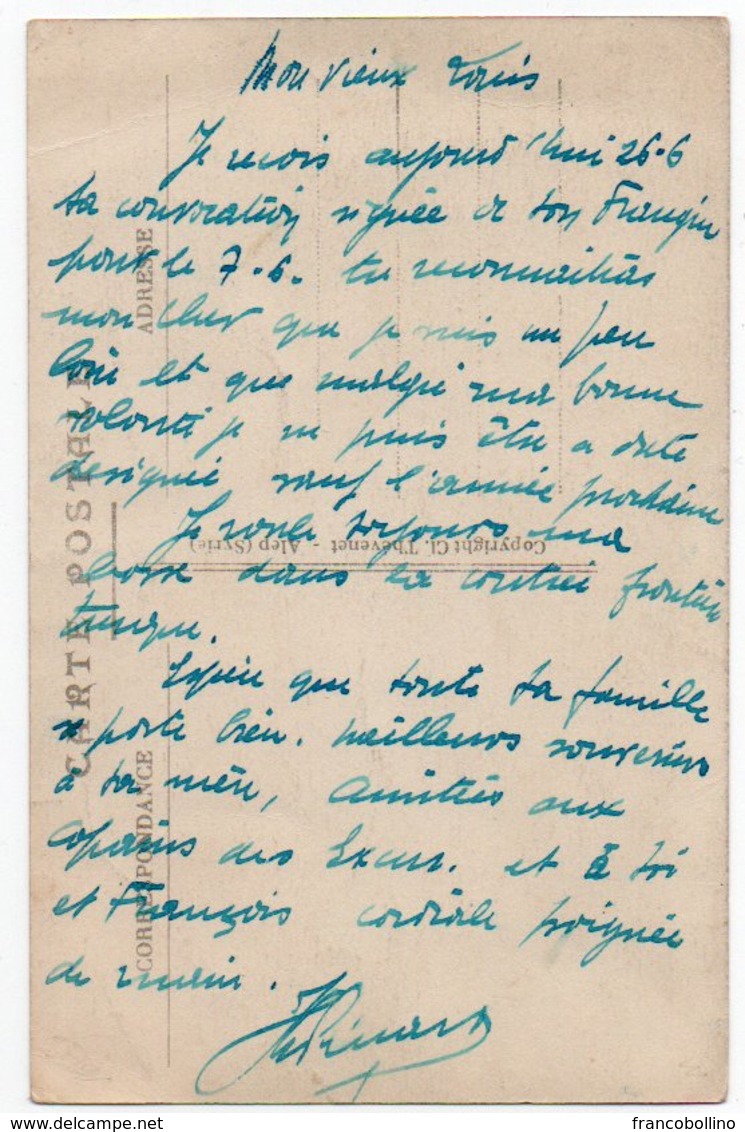 Mon vieux Louis
Je reçois aujourd'hui 26-6
ta convocation signée de ton Frangin
pour le 7-6. tu reconnaitras
mon cher que je suis un peu
loin et que malgré ma bonne
volonté je ne puis être a date
designée sauf l'année prochaine
Je roule toujours ma
bosse dans la contrée frontière
turque.
Espère que toute ta famille
se porte bien. Meilleurs souvenirs
à ta mère, amitiés aux
copains des Excur. et à toi
et François cordiale poignée
de main.
CARTE POSTALE
CORRESPONDANCE
ADRESSE
Copyright Cl. Thévenet - Alep (Syrie)
francobollino